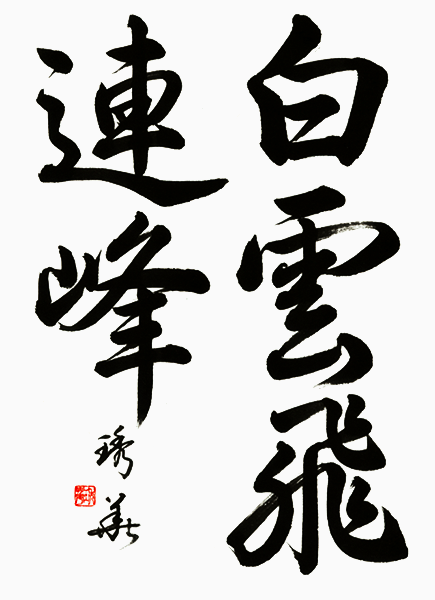 白雲飛
連峰
琇華